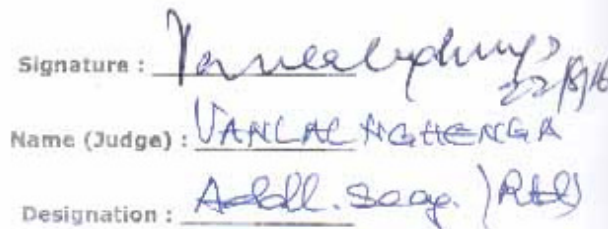 Signature : 22/8/16
Name (Judge) : VANLALNGHENGA
Designation : Addl. Secy. (Rtd)